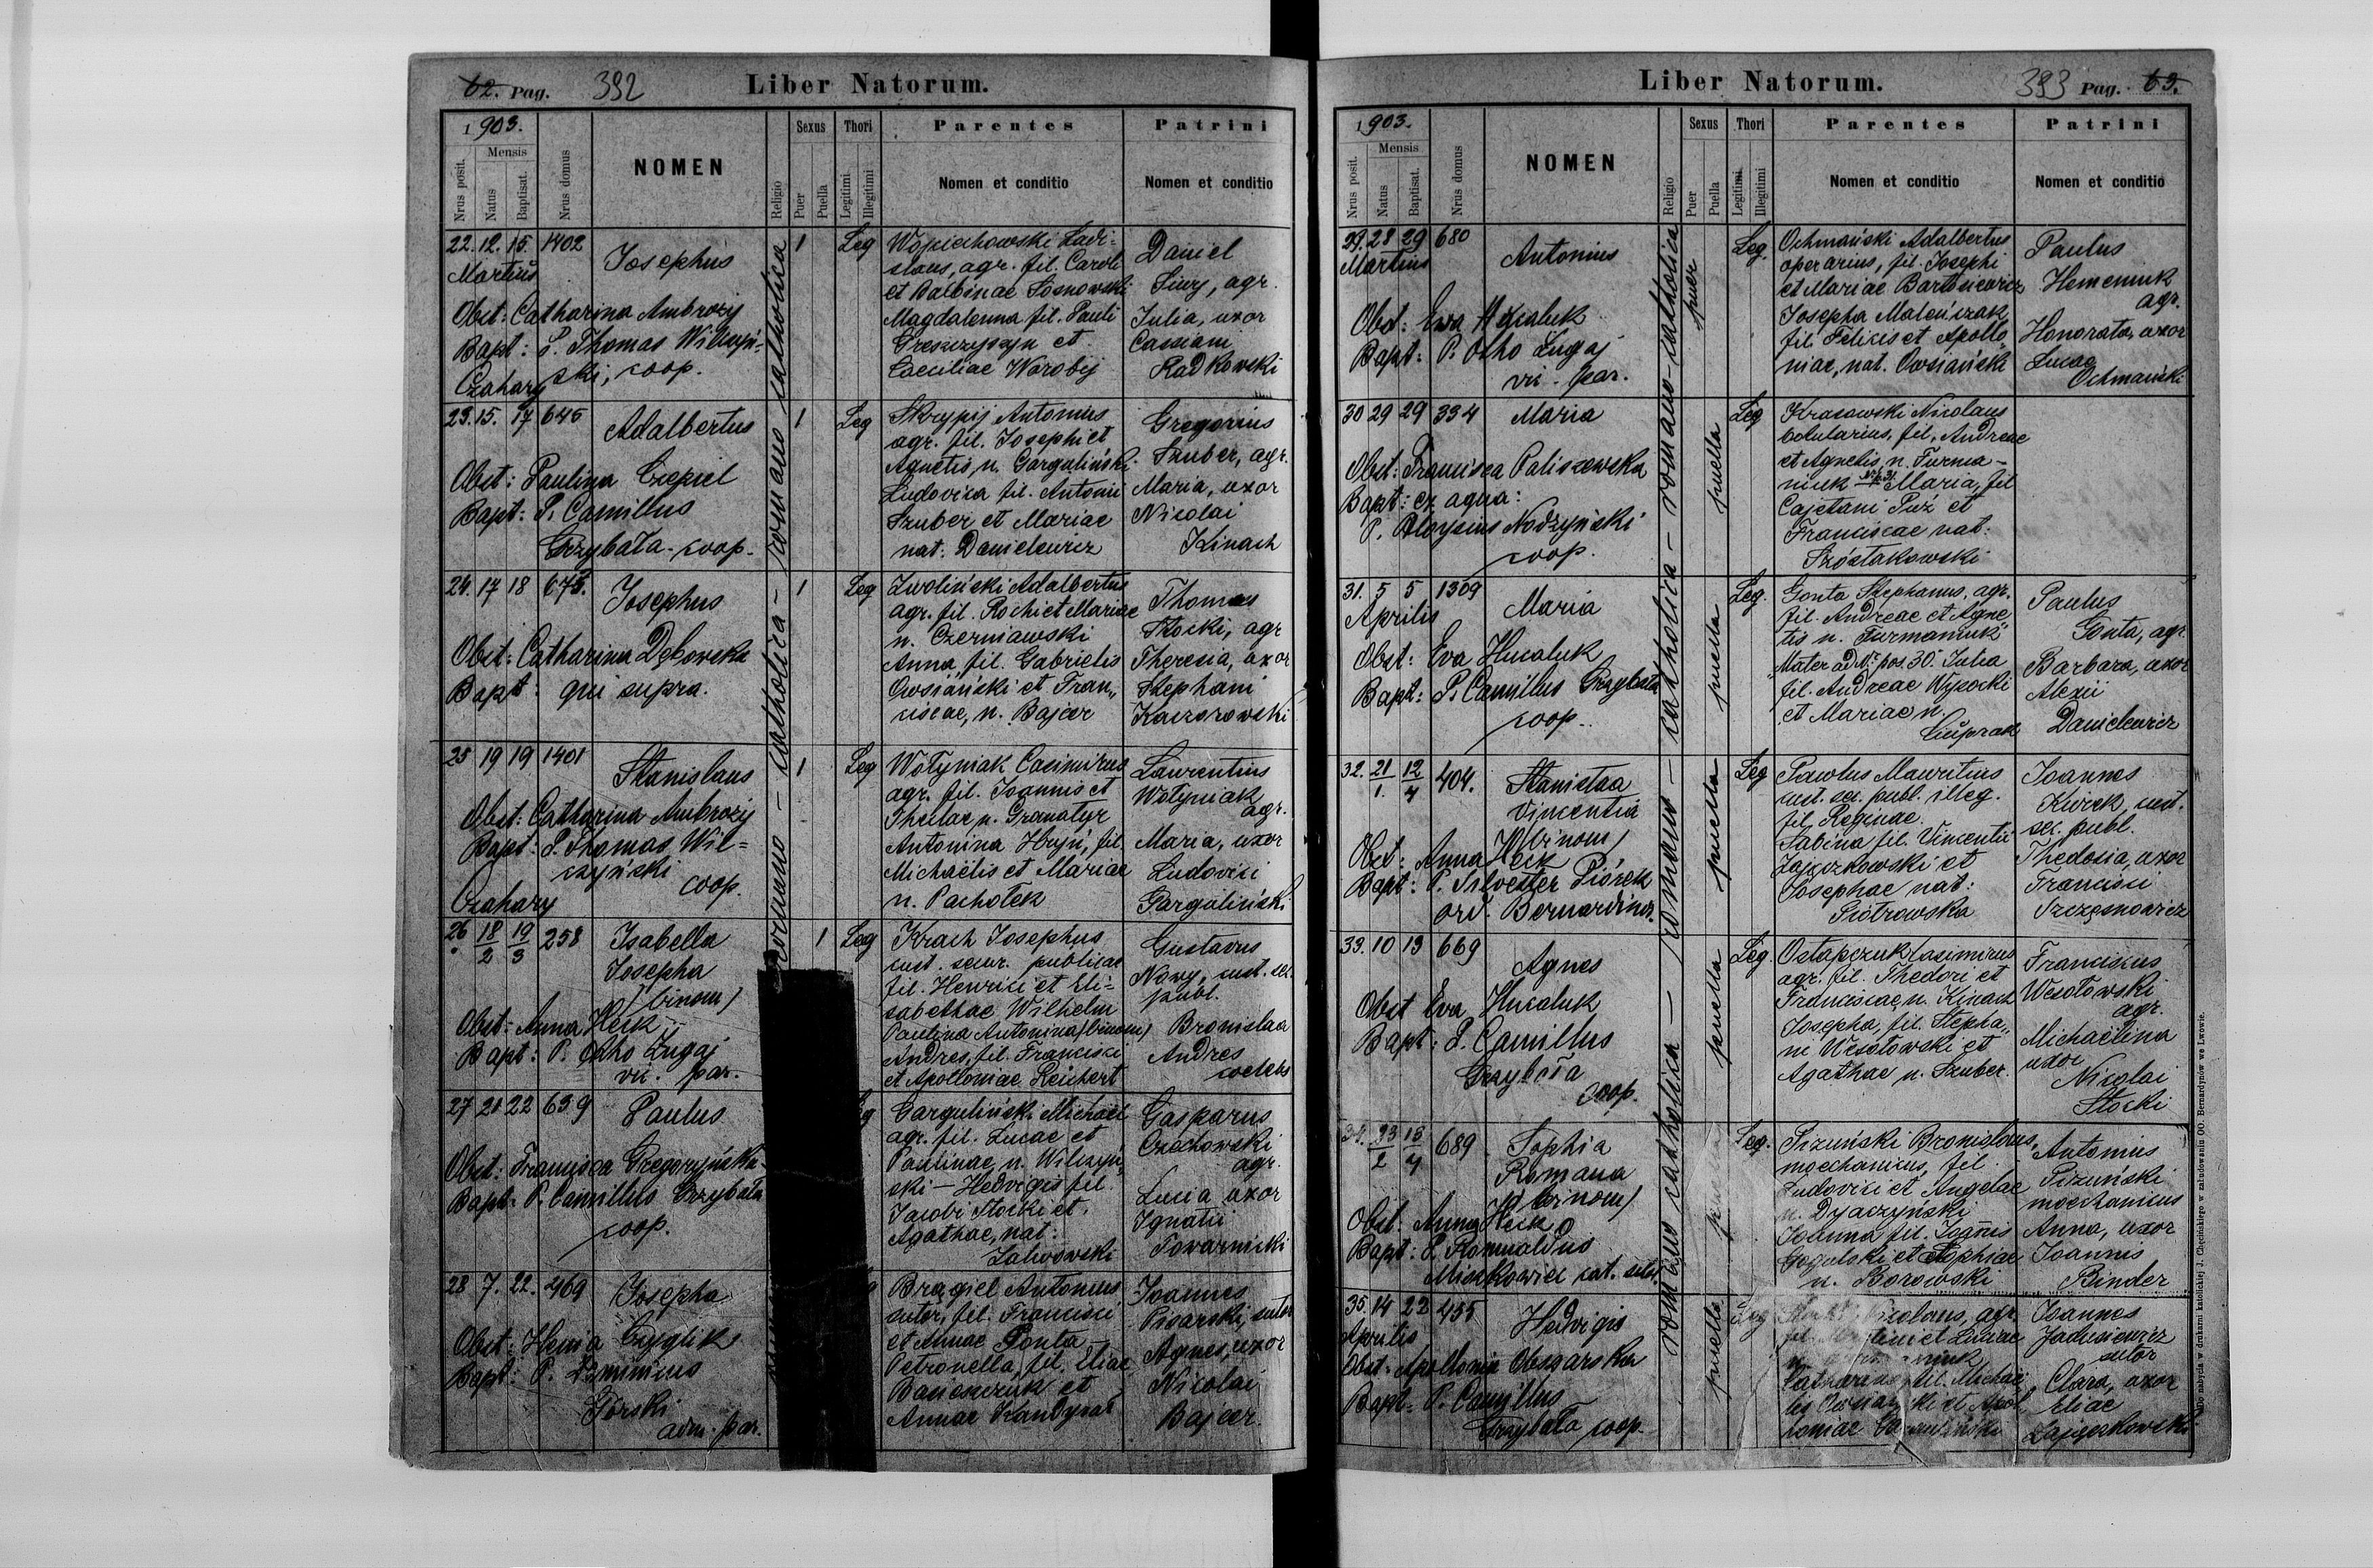 62. Pag. 392 Liber Natorum.
1903.
Mensis
Nrus posit.
Natus
Baptisat.
Nrus domus
NOMEN
Religio
Sexus
Puer
Puella
Thori
Legitimi
Illegitimi
Parentes
Nomen et conditio
Patrini
Nomen et conditio
romano - catholica - romano catholica
22. 12. 15. 1402 Josephus 1 Leg
Martius
Obst: Catharina Ambroży
Bapt: P. Thomas Wilczyń-
ski, coop.
Czahary
Wojciechowski Ladi-
slaus, agr. fil. Caroli
et Balbinae Sosnowski
Magdalenna fil. Pauli
Greszczyszyn et
Caeciliae Worobij
Daniel
Siwy, agr.
Julia, uxor
Cassiani
Radkowski
23. 15. 17 645 Adalbertus 1 Leg
Obst: Paulina Czepiel
Bapt: P. Camillus
Grzybała - coop.
Skrypij Antonius
agr. fil. Josephi et
Agnetis n. Garguliński.
Ludovica fil. Antonii
Szuber et Mariae
nat. Danielewicz
Gregorius
Szuber, agr.
Maria, uxor
Nicolai
Kinach
24. 17 18 673. Josephus 1 Leg
Obst: Catharina Dębowska
Bapt: qui supra.
Zwoliński Adalbertus
agr. fil. Rochi et Mariae
n. Czerniawski
Anna fil. Gabrielis
Owsiański et Fran„
ciscae, n. Bajcar
Thomas
Stocki, agr
Theresia, uxor
Stephani
Kaczorowski
25 19 19 1401 Stanislaus 1 Leg
Obst: Catharina Ambroży
Bapt: P. Thomas Wil-
czyński
coop.
Czahary
Wołyniak Casimirus
agr. fil. Joannis et
Theclae n. Granatyr
Antonina Hryń, fil.
Michaëlis et Mariae
n. Pachołek
Laurentius
Wołyniak
agr.
Maria, uxor
Ludovici
Garguliński
26 18/2 19/3 258 Isabella 1 Leg
Josepha
/binom/
Obst: Anna Heck
Bapt: P. Otho Zugaj
vic. par.
Krach Josephus
cust. secur. publicae
fil. Henrici et Eli-
sabethae Wilhelm
Paulina Antonina /binom/
Andres, fil. Francisci
et Apolloniae Reichert
Gustavus
Nowy, cust. sec.
publ.
Bronislaa
Andres
coelebs
27 21 22 639 Paulus
Obst: Francisca Gregoryńska
Bapt: P. Camillus Grzybała
coop.
Garguliński Michaël
agr. fil. Lucae et
Paulinae, n. Wilczyń„
ski - Hedvigis fil
Jacobi Stocki et
Agathae, nat:
Zalwowski
Gasparus
Czechowski
agr.
Lucia uxor
Ignatii
Towarnicki
28 7. 22. 469 Josepha
Obst: Henia Czyglik
Bapt: P. Dominicus
Górski
adm. par.
Bragiel Antonius
sutor, fil. Francisci
et Annae Gonta -
Petronella, fil. Eliae
et
Annae
Joannes
Pisarski, sutor
Agnes, uxor
Nicolai
Bajcar.
Liber Natorum. 393 Pag. 63.
1903.
Mensis
Nrus posit.
Natus
Baptisat.
Nrus domus
NOMEN
Religio
Sexus
Puer
Puella
Thori
Legitimi
Illegitimi
Parentes
Nomen et conditio
Patrini
Nomen et conditio
romano catholica - romano - catholica - romano - catholica
29. 28 29 680 Antonius puer Leg.
Martius
Obst: Ewa Hucaluk
Bapt: P. Otho Zugaj
vic. par.
Ochmański Adalbertus
operarius, fil. Josephi
et Mariae Bartkiewicz
Josepha Maleńczak
fil. Felicis et Apollo„
niae, nat. Owsiański
Paulus
Hemeniuk
agr.
Honorata, uxor
Lucae
Ochmański
30 29 29 334 Maria puella Leg
Obst: Francisca Paliszewska
Bapt: ex aqua:
P. Aloysius Nodzyński
coop.
Krasowski Nicolaus
fil. Andreae
et Agnetis, n. Furma-
niuk Maria, fil
Cajetani Puź et
Franciscae nat:
Szóstakowski
31. 5 5 1309 Maria puella Leg.
Aprilis
Obst: Eva Hucaluk
Bapt: P. Camillus Grzybała
coop.
Gonta Stephanus, agr.
fil. Andreae et Agne„
tis n. Furmaniuk
"Mater ad Nr. pos 30." Julia
fil. Andreae Wysocki
et Mariae n.
Ciuprak
Paulus
Gonta, agr.
Barbara, uxor
Alexii
Danielewicz
32. 21/1. 12/4 404. Stanislaa puella Leg
Vincentia
/binom/
Obst: Anna Heck
Bapt: P. Silvester Piórek
ord. Bernardinor.
Pawlus Mauritius
cust. sec. publ. illeg.
fil. Reginae.
Sabina, fil. Vincentii
Zajączkowski et
Josephae nat:
Piotrowska
Joannes
Kurek, cust.
sec. publ.
Thedosia, uxor
Francisci
Szczęsnowicz
33. 10 13 669 Agnes puella Leg.
Obst Eva Hucaluk
Bapt: P. Camillus
Grzybała
coop.
Ostapczuk Casimirus
agr. fil. Thedori et
Franciscae, n. Kinach
Josepha, fil. Stepha„
ni Wesołowski et
Agathae n. Szuber.
Franciscus
Wesołowski
agr.
Michaëlina
uxor
Nicolai
Stocki
34. 23/2 13/4 689 Sophia Leg.
Romana
/binom/
Obst: Anna Heck
Bapt: P. Romualdus
Miszkowicz cat.
Pizuński Bronislaus,
moechanicus, fil.
Ludovici et Angelae
n. Dyaczyński
Joanna fil. Joānis
Gogulski et Sophiae
n. Borowski
Antonius
Pizuński
moechanicus
Anna, uxor
Joannis
Binder
35. 14 22 455 Hedvigis puella Leg
Aprilis
Obst: Apollonia Obszarska
Bapt: P. Camillus
Grzybała coop.
Nicolaus, agr
et Luciae
Catharina fil. Michaë
lis et Apol„
loniae
Joannes
Jadusiewicz
sutor
Clara, uxor
Eliae
Zajączkowski
nabycia w drukarni katolickiej J. Chęcińskiego w zabudowaniu OO. Bernardynów we Lwowie.